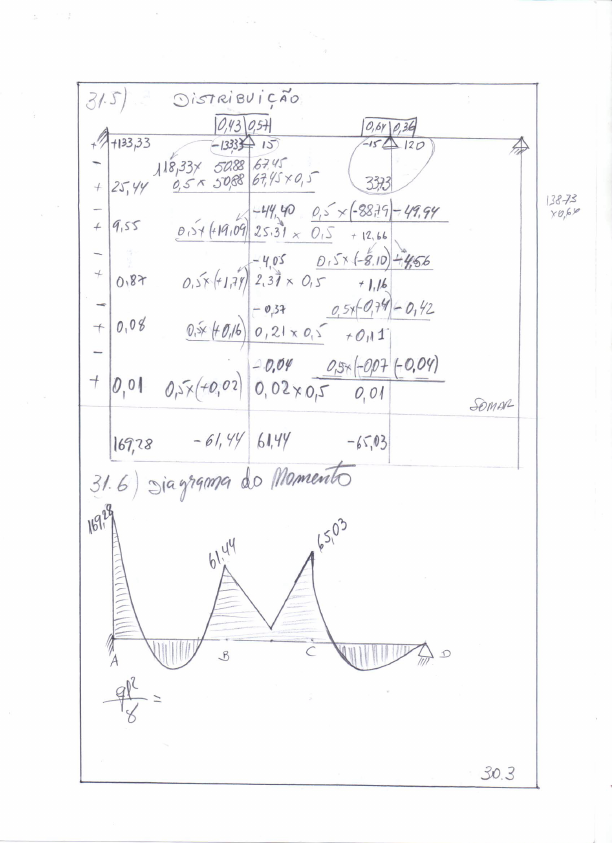 31.5) DISTRIBUIÇÃO
0,43 0,57 0,64 0,36
+ +133,33 -133,33 15 -15 120
- 118,33 x 50,88 67,45
+ 25,44 0,5 x 50,88 67,45 x 0,5 33,73
138.73
x0,64
- -44,40 0,5 x (-88,79) -49,94
+ 9,55 0,5 x (+19,09) 25,31 x 0,5 + 12,66
- -4,05 0,5 x (-8,10) -4,56
+ 0,87 0,5 x (+1,74) 2,31 x 0,5 +1,16
- -0,37 0,5 x (-0,74) -0,42
+ 0,08 0,5 x (+0,16) 0,21 x 0,5 +0,11
- -0,04 0,5 x (-0,07 (-0,04)
+ 0,01 0,5 x (+0,02) 0,02 x 0,5 0,01
SOMAR
169,28 -61,44 61,44 -65,03
31.6) Diagrama do Momento
169,28
61,44
65,03
A B C D
ql²/8 =
30.3